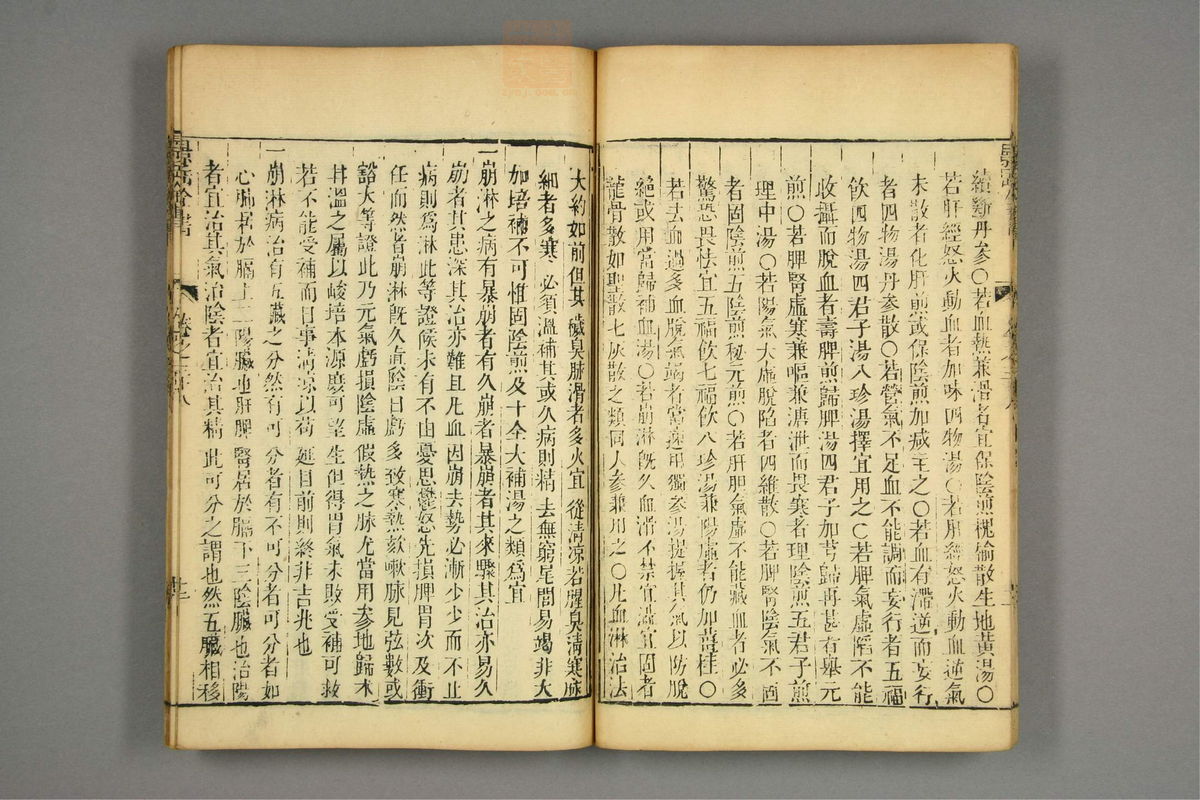 續斷丹參○若血熱兼滑者宜保陰煎槐榆散生地黃湯○
若肝經怒火動血者加味四物湯○若肝經怒火動血逆氣
未散者化肝煎或保陰煎加減主之○若血有滯逆而妄行
者四物湯丹參散○若營氣不足血不能調而妄行者五福
飲四物湯四君子湯八珍湯擇宜用之○若脾氣虛陷不能
收攝而脫血者壽脾煎歸脾湯四君子加芎歸再甚者舉元
煎○若脾腎虛寒兼嘔兼溏泄而畏寒者理陰煎五君子煎
理中湯○若陽氣大虛脫陷者四維散○若脾腎陰氣不固
者固陰煎五陰煎秘元煎○若肝胆氣虛不能藏血者必多
驚恐畏怯宜五福飲七福飲八珍湯兼陽虛者仍加薑桂○
若去血過多血脫氣竭者當速用獨參湯提握其氣以防脫
絕或用當歸補血湯○若崩淋既久血滑不禁宜澁宜固者
龍骨散如聖散七灰散之類同人參兼用之○凡血淋治法
大約如前但其穢臭脉滑者多火宜從清凉若腥臭清寒脉
細者多寒必須溫補其或久病則精去無窮尾閭易竭非大
加培補不可惟固陰煎及十全大補湯之類爲宜
一崩淋之病有暴崩者有久崩者暴崩者其來驟其治亦易久
崩者其患深其治亦難且凡血因崩去勢必漸少少而不止
病則爲淋此等證候未有不由憂思鬱怒先損脾胃次及衝
任而然者崩淋既久眞陰日虧多致寒熱欬嗽脉見弦數或
豁大等證此乃元氣虧損陰虛假熱之脉尤當用參地歸朮
甘溫之屬以峻培本源庶可望生但得胃氣未敗受補可救
若不能受補而日事清凉以苟延目前則終非吉兆也
一崩淋病治有五臟之分然有可分者有不可分者可分者如
心肺居於膈上二陽臟也肝脾腎居於膈下三陰臟也治陽
者宜治其氣治陰者宜治其精此可分之謂也然五臟相移
卷之三十八